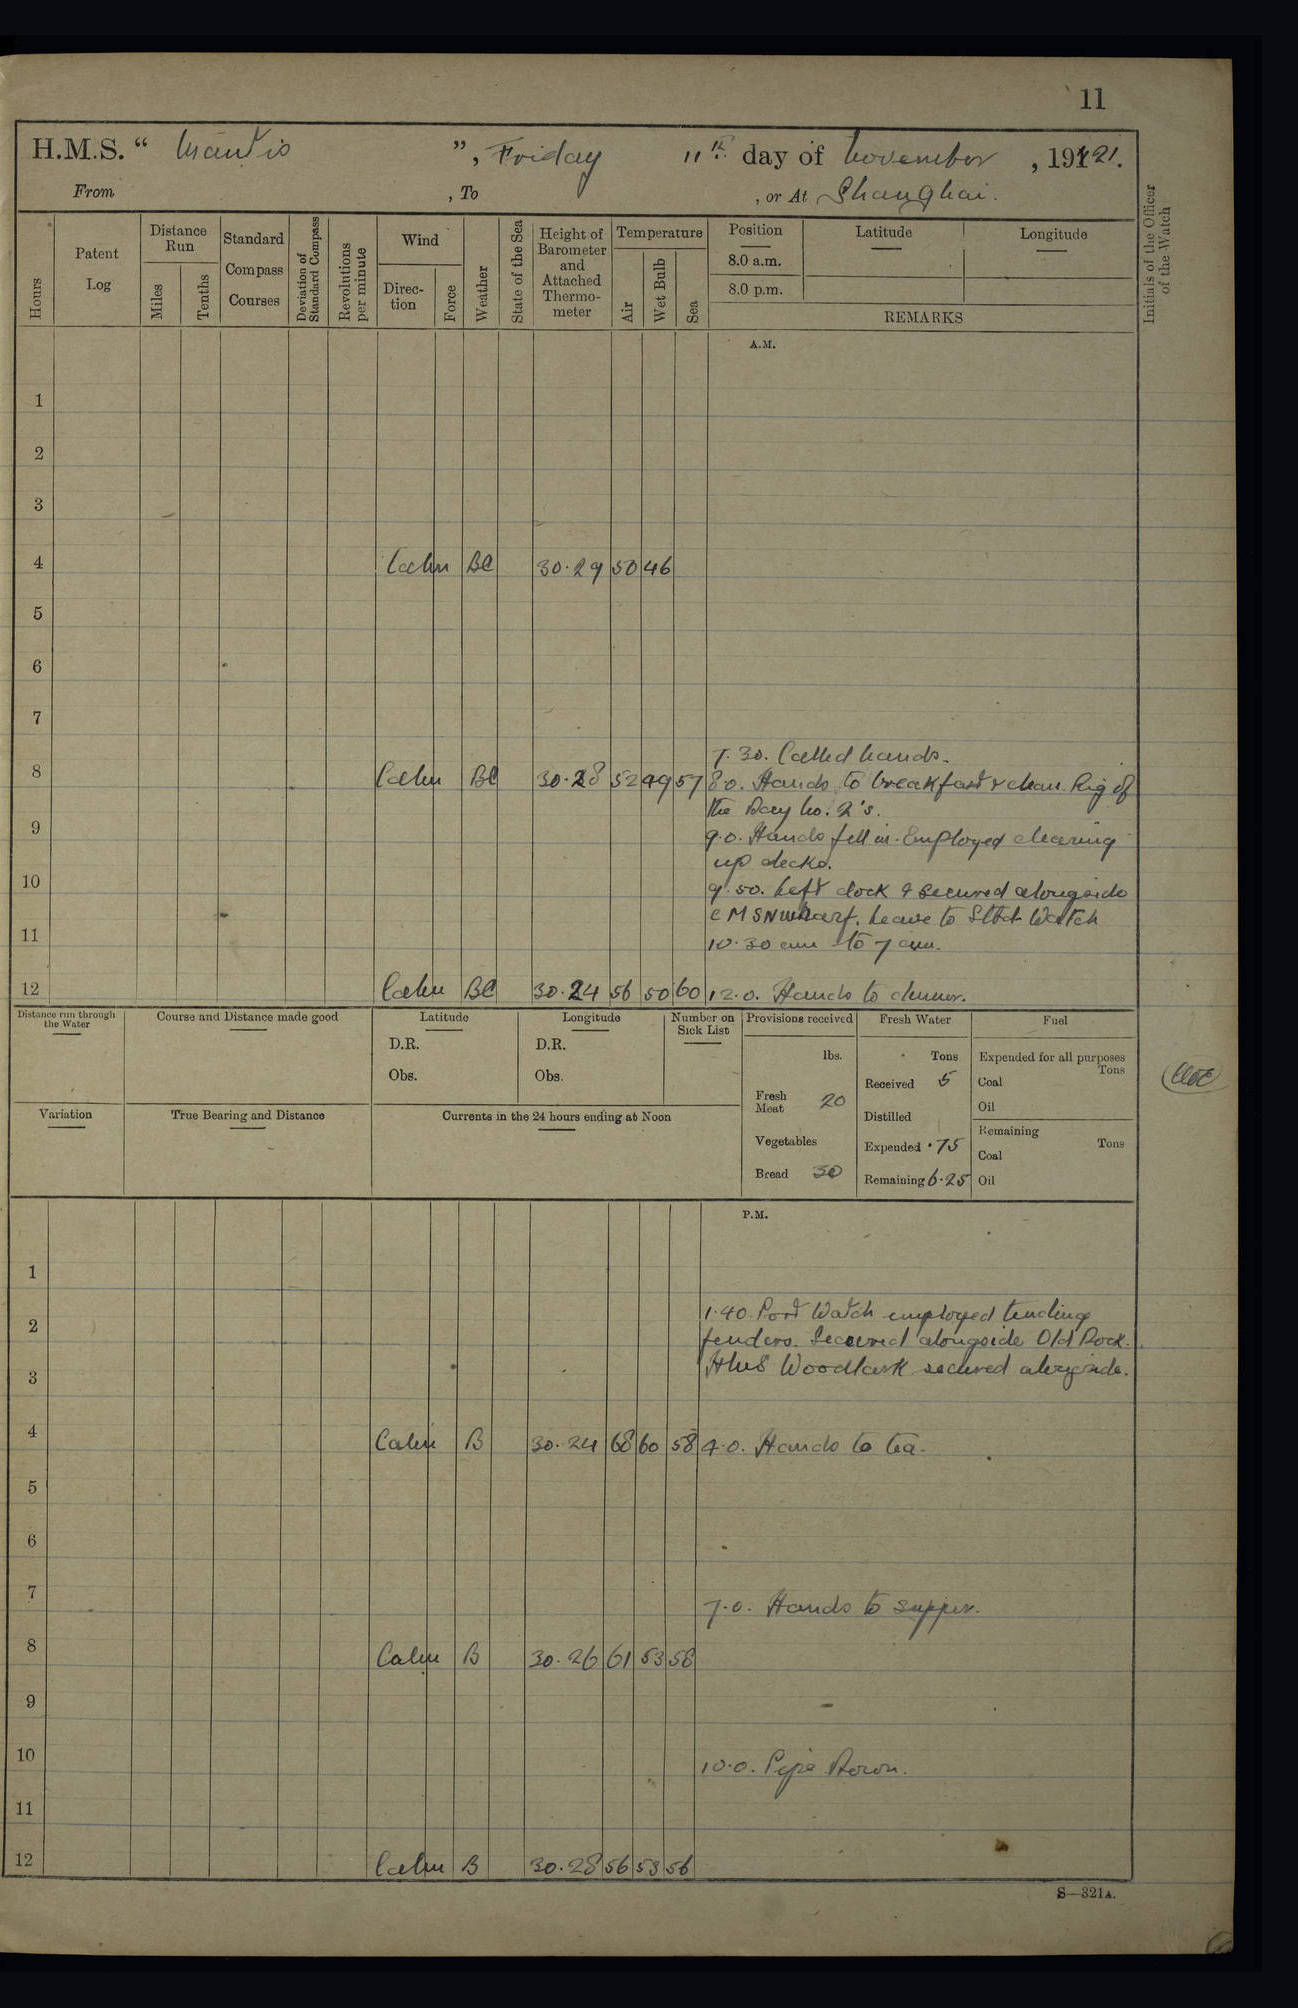 11
H.M.S. “ Mantis ”, Friday 11th day of November, 1921.
From , To , or At Shanghai.
Hours
Patent Log
Distance Run
Miles
Tenths
Standard Compass Courses
Deviation of Standard Compass
Revolutions per minute
Wind
Direction
Force
Weather
State of the Sea
Height of Barometer and Attached Thermometer
Temperature
Air
Wet Bulb
Sea
Position
8.0 a.m.
8.0 p.m.
Latitude
Longitude
REMARKS
Initials of the Officer of the Watch
A.M.
1
2
3
4 Calm BC 30.29 50 46
5
6
7
7.30. Called hands.
8 Calm BC 30.28 52 49 57 8.0. Hands to breakfast & clean. Rig of
the Day No. 2's.
9 9.0. Hands fell in. Employed clearing
up decks.
10 9.50. Left dock & secured alongside
C M S N Wharf. Leave to Stbd Watch
11 10.30 am to 7 am.
12 Calm BC 30.24 56 50 60 12.0. Hands to dinner.
Distance run through the Water
Course and Distance made good
Latitude
D.R.
Obs.
Longitude
D.R.
Obs.
Number on Sick List
Provisions received
lbs.
Fresh Meat 20
Vegetables
Bread 30
Fresh Water
Tons
Received 5
Distilled
Expended .75
Remaining 6.25
Fuel
Expended for all purposes
Tons
Coal
Oil
Remaining
Tons
Coal
Oil
Variation
True Bearing and Distance
Currents in the 24 hours ending at Noon
P.M.
1
1.40. Port Watch employed tending
2 fenders. Secured alongside Old Dock.
3 HMS Woodlark secured alongside.
4 Calm B 30.24 68 60 58 4.0. Hands to tea.
5
6
7 7.0. Hands to supper.
8 Calm B 30.26 61 53 58
9
10 10.0. Pipe Down.
11
12 Calm B 30.28 56 53 56
S—321A.